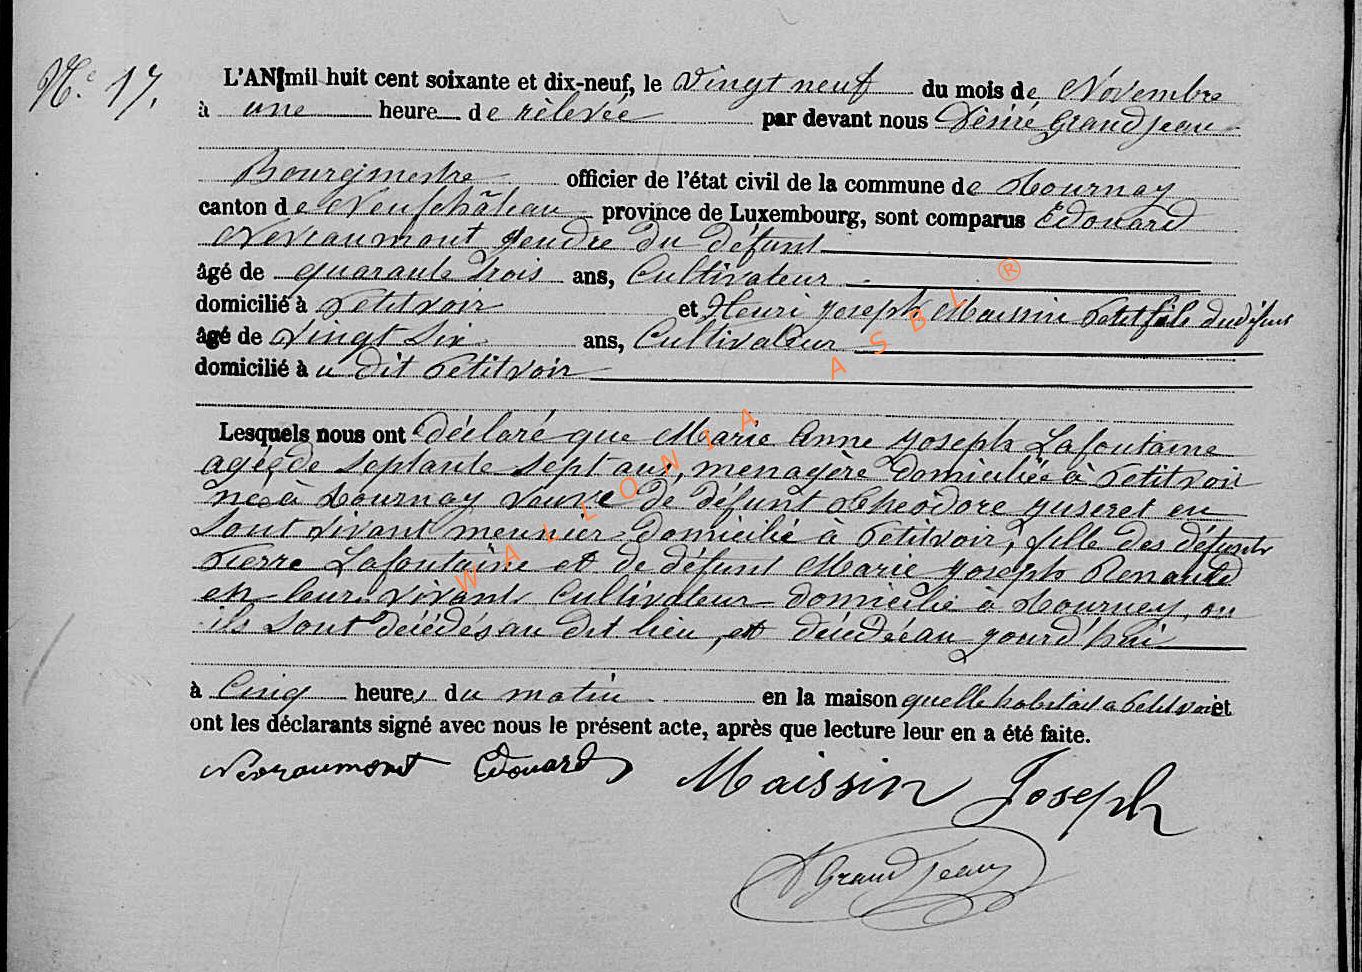 N.° 17.
L'AN mil huit cent soixante et dix-neuf, le Vingt neuf du mois de Novembre
à une heure de rèlevée par devant nous Dèsiré Grandjean
Bourgmestre officier de l'état civil de la commune de Tournay
canton de Neufchâteau province de Luxembourg, sont comparus Edouard
Nevraumont gendre du défunt
âgé de quarante trois ans, Cultivateur
domicilié à Petitvoir et Henri Joseph Maissin Petit fils du défunt
âgé de Vingt Six ans, Cultivateur
domicilié à u dit Petitvoir
Lesquels nous ont déclaré que Marie Anne Joseph Lafontaine
agée de Septante Sept ans, menagère domiciliée à Petitvoir
née à Tournay Veuve de défunt Théodore Guseret en
Sont vivant meunier domicilié à Petitvoir, fille des défunts
Pierre Lafontaine et de défunt Marie Joseph Renauld
en leur vivant Cultivateur domicilié à Tournay, ou
ils Sont décédés au dit lieu, et décédée au jourd'hui
à Cinq heures du matin en la maison quelle habitait a Petitvoir et
ont les déclarants signé avec nous le présent acte, après que lecture leur en a été faite.
Nevraumont Edouard Maissin Joseph
D Grandjean
WALLONIA ASBL ®